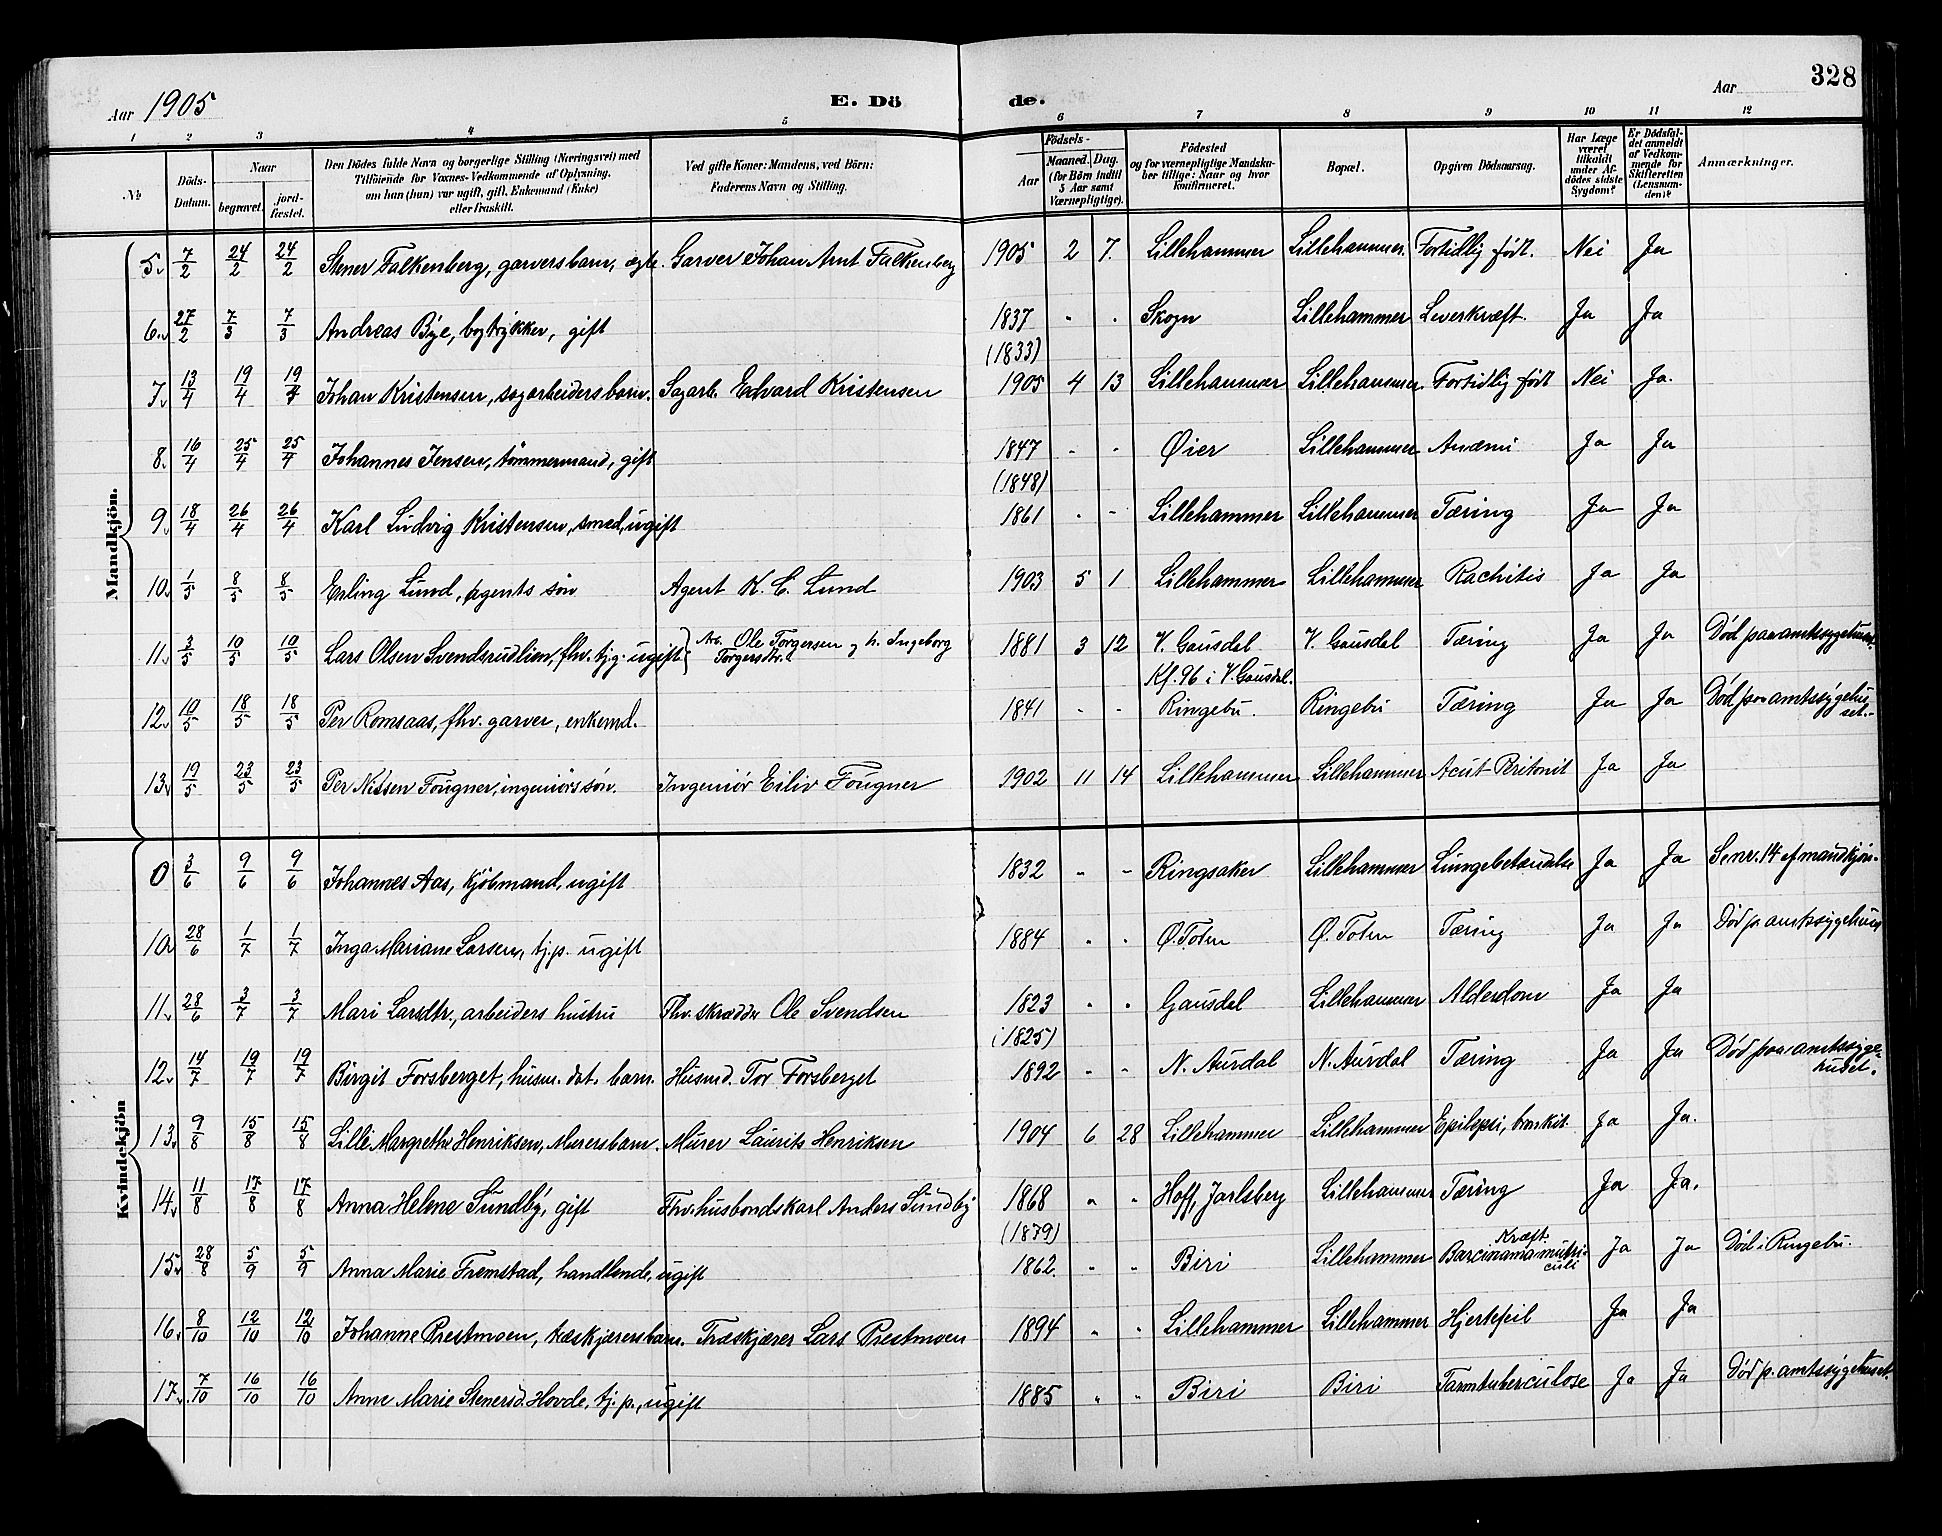 Aar 1905 E. Dö de. Aar 328
1 2 3 4 5 6 7 8 9 10 11 12
No Döds-Datum. Naar begravet. jord-fæstet. Den Dödes fulde Navn og borgerlige Stilling (Næringsvei) med Tilföiende for Voxnes Vedkommende af Oplysning, om han (hun) var ugift, gift, Enkemand (Enke) eller fraskilt. Ved gifte Koner: Mandens, ved Börn: Faderens Navn og Stilling. Födsels- Aar Maaned. Dag. (for Börn indtil 5 Aar samt Værnepligtige). Födested og for værnepligtige Mandskaber tillige: Naar og hvor konfirmeret. Bopæl. Opgiven Dödsaarsag. Har Læge været tilkaldt under Afdödes sidste Sygdom? Er Dödsfaldet anmeldt af Vedkommende for Skifteretten (Lensmanden)? Anmærkninger.
Mandkjön.
5 7/2 24/2 24/2 Stener Falkenberg, garversbarn, ægte. Garver Johan Arnt Falkenberg 1905 2 7. Lillehammer Lillehammer. Fortidlig født. Nei Ja
6 27/2 7/3 7/3 Andreas Bye, bogtrykker, gift 1837 " " Skogn Lillehammer Leverkræft. Ja Ja
(1833)
7 13/4 19/4 19/4 Johan Kristensen, sagarbeidersbarn. Sagarb. Edvard Kristensen 1905 4 13 Lillehammer Lillehammer Fortidlig født Nei Ja.
8 16/4 25/4 25/4 Johannes Jensen, tømmermand, gift 1847 " " Øier Lillehammer Anæmi Ja Ja
(1848)
9 18/4 26/4 26/4 Karl Ludvig Kristensen, smed, ugift 1861 " " Lillehammer Lillehammer Tæring Ja Ja
10 1/5 8/5 8/5 Erling Lund, agents søn Agent K. C. Lund 1903 5 1 Lillehammer Lillehammer Rachitis Ja Ja
11 3/5 10/5 10/5 Lars Olsen Svendsrudlien, fhv. tjg. ugift Arb. Ole Torgersen og h. Ingeborg Torgersdtr. 1881 3 12 V. Gausdal V. Gausdal Tæring Ja Ja Død paa amtssygehuset.
Kf. 96 i V. Gausdal.
12 10/5 18/5 18/5 Per Romsaas, fhv. garver, enkemd. 1841 " " Ringebu. Ringebu Tæring Ja Ja Død paa amtssygehuset.
13 19/5 23/5 23/5 Per Nissen Fougner, ingeniørs søn. Ingeniør Eiliv Fougner 1902 11 14 Lillehammer Lillehammer Acut Peritonit Ja Ja
Kvindekjön
0 3/6 9/6 9/6 Johannes Aas, kjøbmand, ugift 1832 " " Ringsaker Lillehammer Lungebetændelse Ja Ja Se nr. 14 af mandkjøn.
10 28/6 1/7 1/7 Inga Mariane Larsen, tj.p. ugift 1884 " " Ø. Toten Ø. Toten Tæring Ja Ja Død p. amtssygehuset
11 28/6 3/7 3/7 Mari Larsdtr., arbeiders hustru Fhv. skrædder Ole Svendsen 1823 " " Gausdal Lillehammer Alderdom Ja Ja
(1825)
12 14/7 19/7 19/7 Birgit Forsberget, husm. dat. barn. Husmd. Tor Forsberget 1892 " " N. Aurdal N. Aurdal Tæring Ja Ja Død paa amtssygehuset.
13 9/8 15/8 15/8 Lilli Margrethe Henriksen, Murersbarn. Murer Laurits Henriksen 1904 6 28 Lillehammer Lillehammer Epilepsi, bronkit. Ja Ja.
14 11/8 17/8 17/8 Anna Helene Sundby, gift Fhv. husbondskarl Anders Sundby 1868 " " Hoff, Jarlsberg Lillehammer Tæring Ja Ja.
(1879)
15 28/8 5/9 5/9 Anna Marie Fremstad, handlende, ugift 1862. " " Biri Lillehammer Kræft Ja Ja Død i Ringebu.
16 8/10 12/10 12/10 Johanne Prestmoen, træskjærersbarn. Træskjærer Lars Prestmoen 1894 " " Lillehammer Lillehammer Hjertefeil Ja Ja
17 7/10 16/10 16/10 Anne Marie Stenersd. Hovde, tj. p., ugift 1885 " " Biri Biri Tarmtuberculose Ja Ja Død p. amtssygehuset.